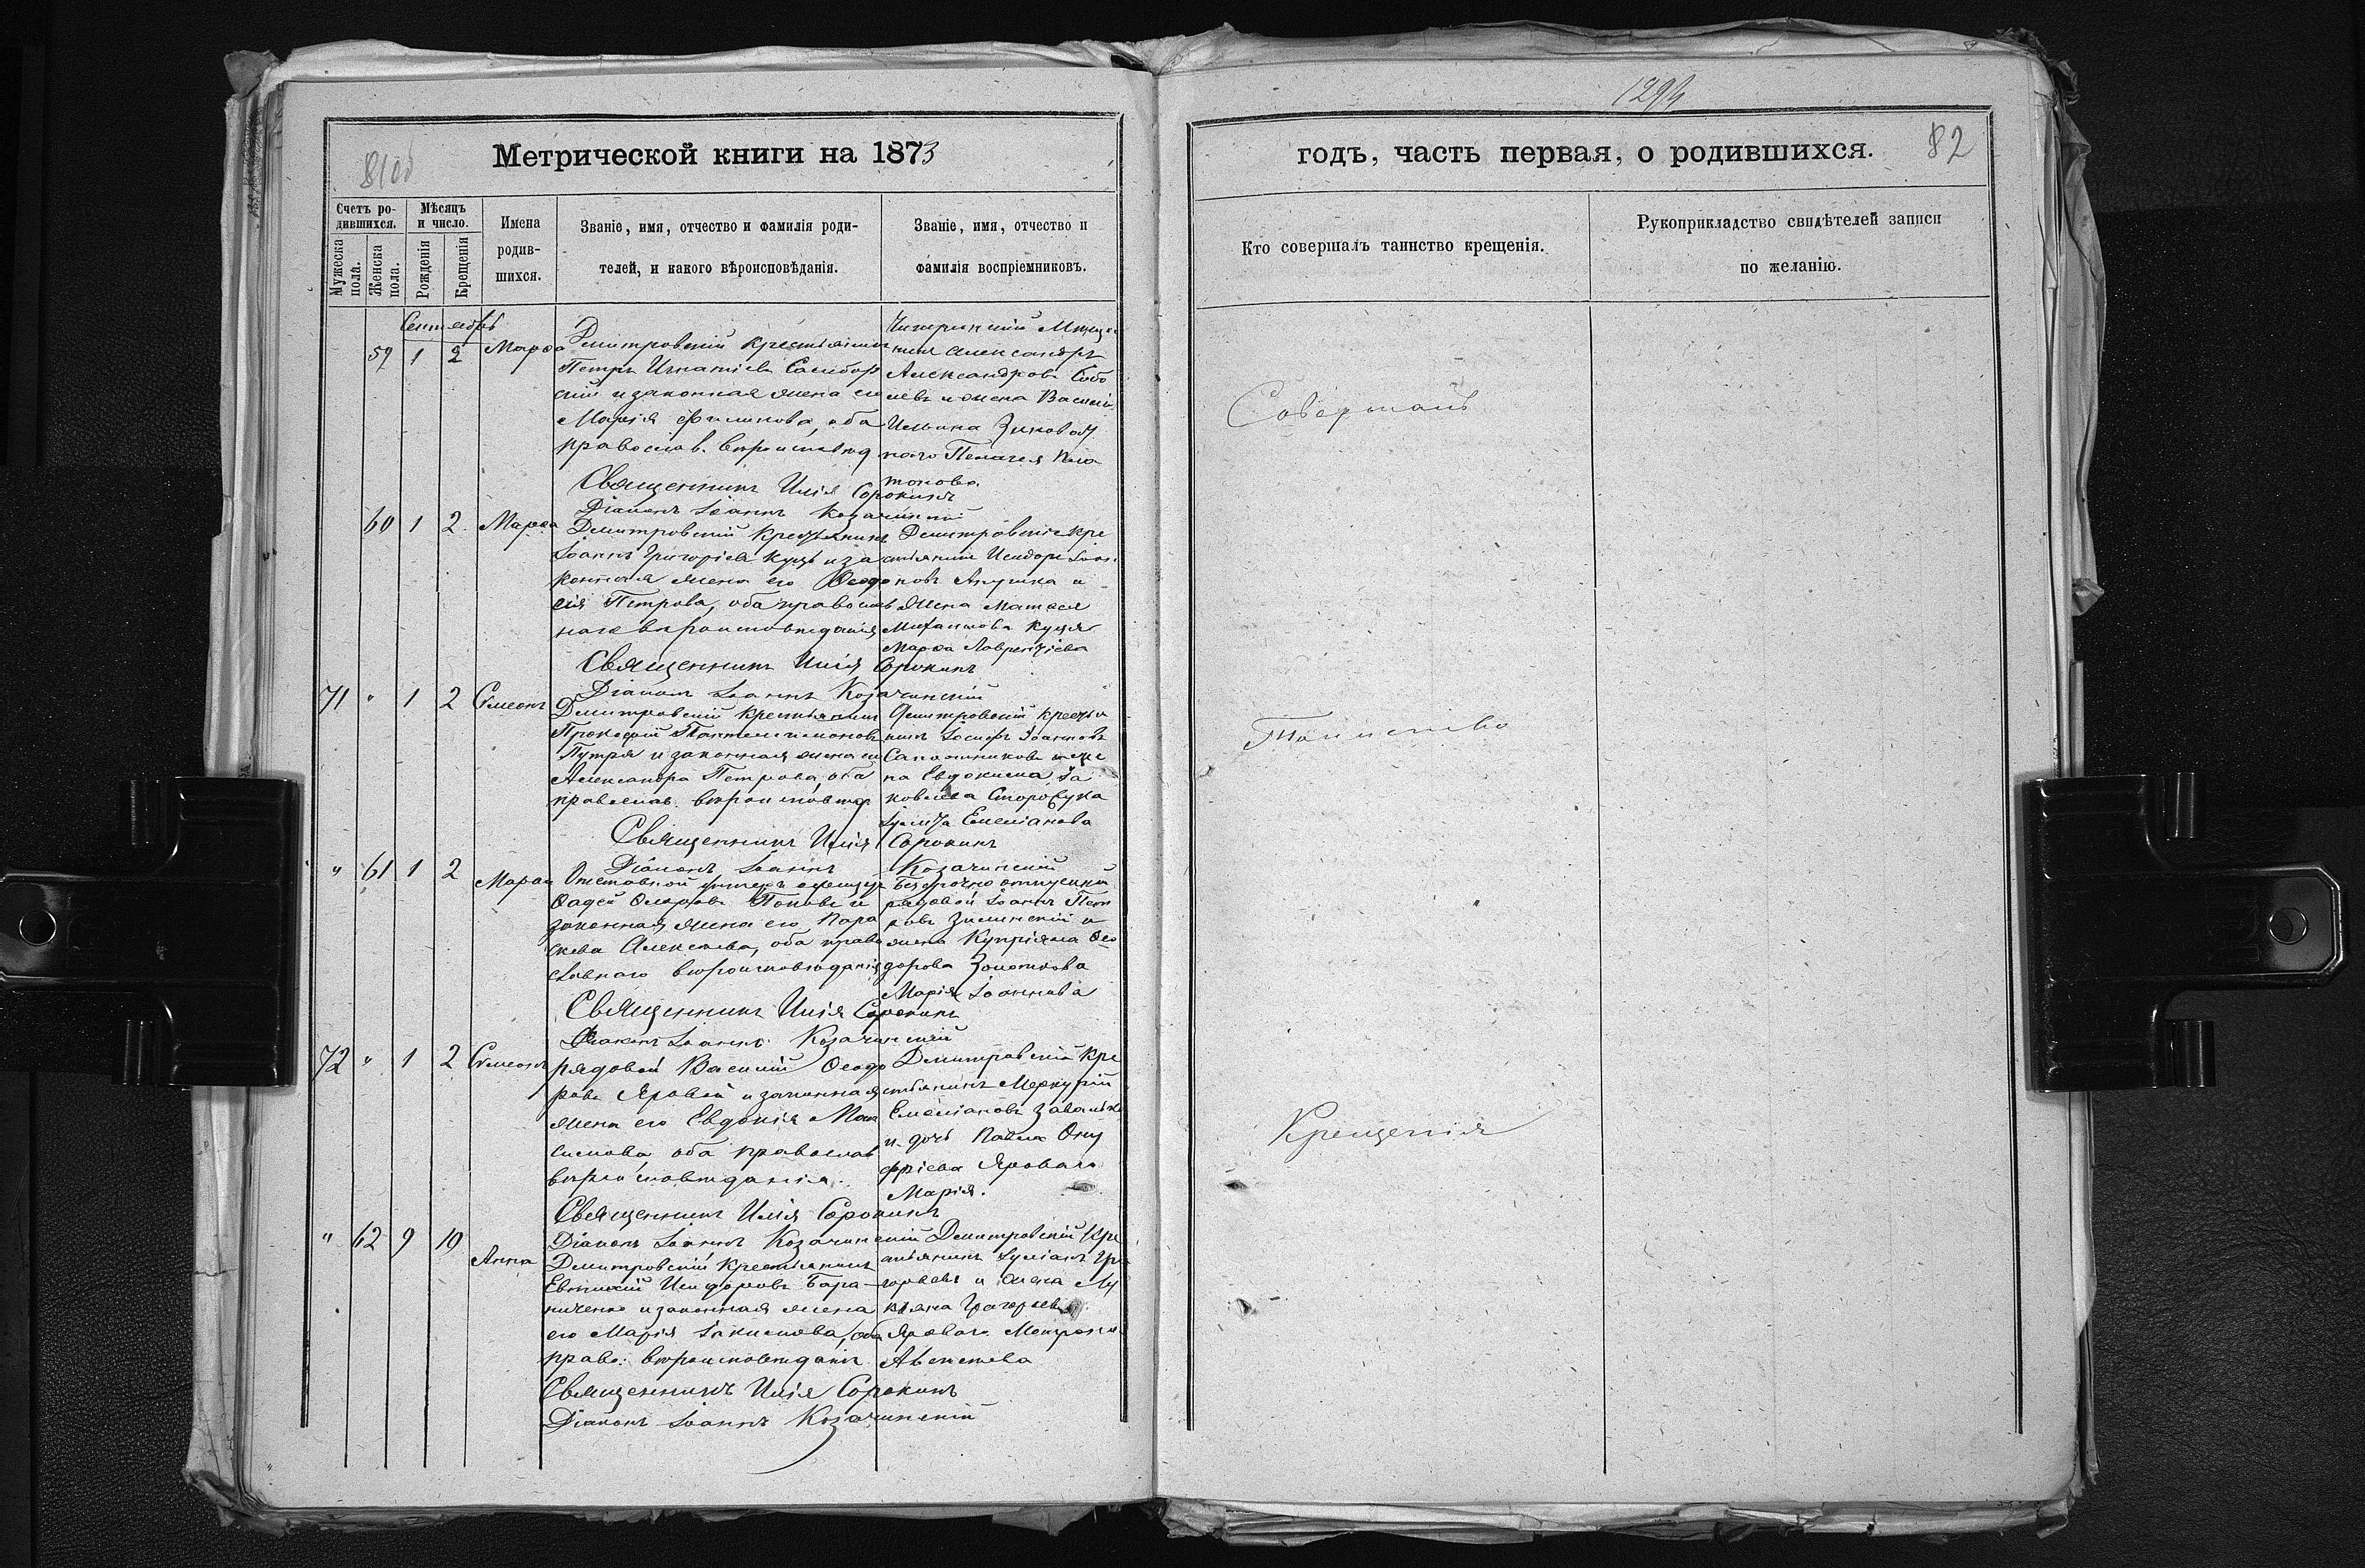 1294
81об
Метрической книги на 1873
годъ, часть первая, о родившихся.
82
Счетъ ро-
дившихся.
Мужеска
пола.
Женска
пола.
Мѣсяцъ
и число.
Рожденія
Крещенія
Имена
родив-
шихся.
Званіе, имя, отчество и фамилія роди-
телей, и какого вѣроисповѣданія.
Званіе, имя, отчество и
фамилія воспріемниковъ.
Кто совершалъ таинство крещенія.
Рукоприкладство свидѣтелей записи
по желанію.
Сентябрь
59 1 2 Марѳа
Дмитровскій крестьянинъ
Петръ Игнатіевъ
и законная жена
Марія Филипова, оба
православ. вѣроисповѣд
Александръ
Александровъ Собо
левъ и жена Василія
Ильина
Пелагея Пла
тонова
Священникъ Илія Сорокинъ
Діаконъ Іоаннъ Козачинскій
60 1 2 Марѳа
Дмитровскій Крестьянинъ
Іоаннъ Григоріевъ Куцъ и за
конная жена его Ѳеодо
сія Петрова, оба православ
наго вѣроисповѣданія
Дмитровскіе кре
стьянинъ Исидоръ Іоан
новъ и
жена Матѳея
Михаилова Куця
Марѳа Лаврентіева
Священникъ Илія Сорокинъ
Діаконъ Іоаннъ Козачинскій
71 " 1 2 Симеонъ
Дмитровскій крестьянинъ
Прокофій Пантелеимоновъ
Путря и законная жена его
Александра Петрова, оба
православ. вѣроисповѣд
Дмитровскій крестья
нинъ Іосифъ Іоанновъ
Сапожниковъ и же
на Евдокима Іа
ковлева Сторожука
Емеліанова
Священникъ Илія Сорокинъ
Діаконъ Іоаннъ Козачинскій
" 61 1 2 Марѳа
Отставной унтеръ офицеръ
Ѳадей Поповъ и
законная жена его Пара
скева Алексѣева, оба право
славнаго вѣроисповѣданія
Безсрочно отпускной
рядовой Іоаннъ Пет
ровъ Зилинскій и
жена Купріяна Ѳео
дорова Золоткова
Марія Іоаннова
Священникъ Илія Сорокинъ
Діаконъ Іоаннъ Козачинскій
72 " 1 2 Симеонъ
рядовой Василій Ѳеодо
ровъ Яровой и законная
жена его Евдокія Мак
симова оба православ
вѣроисповѣданія.
Дмитровскій кре
стьянинъ Меркурій
Емеліановъ
и дочь Павла Ону
фріева Яроваго
Марія.
Священникъ Илія Сорокинъ
Діаконъ Іоаннъ Козачинскій
" 62 9 10 Анна
Дмитровскій Крестьянинъ
Евтихій Исидоровъ Бара-
ниченко и законная жена
его Марія Іакимова, оба
прав. вѣроисповѣданія
Дмитровскій кре
стьянинъ Іуліанъ
и жена Лу
кіяна Григорьева
Яроваго Матрона
Алексѣева
Священникъ Илія Сорокинъ
Діаконъ Іоаннъ Козачинскій
Совершалъ
Таинство
Крещенія